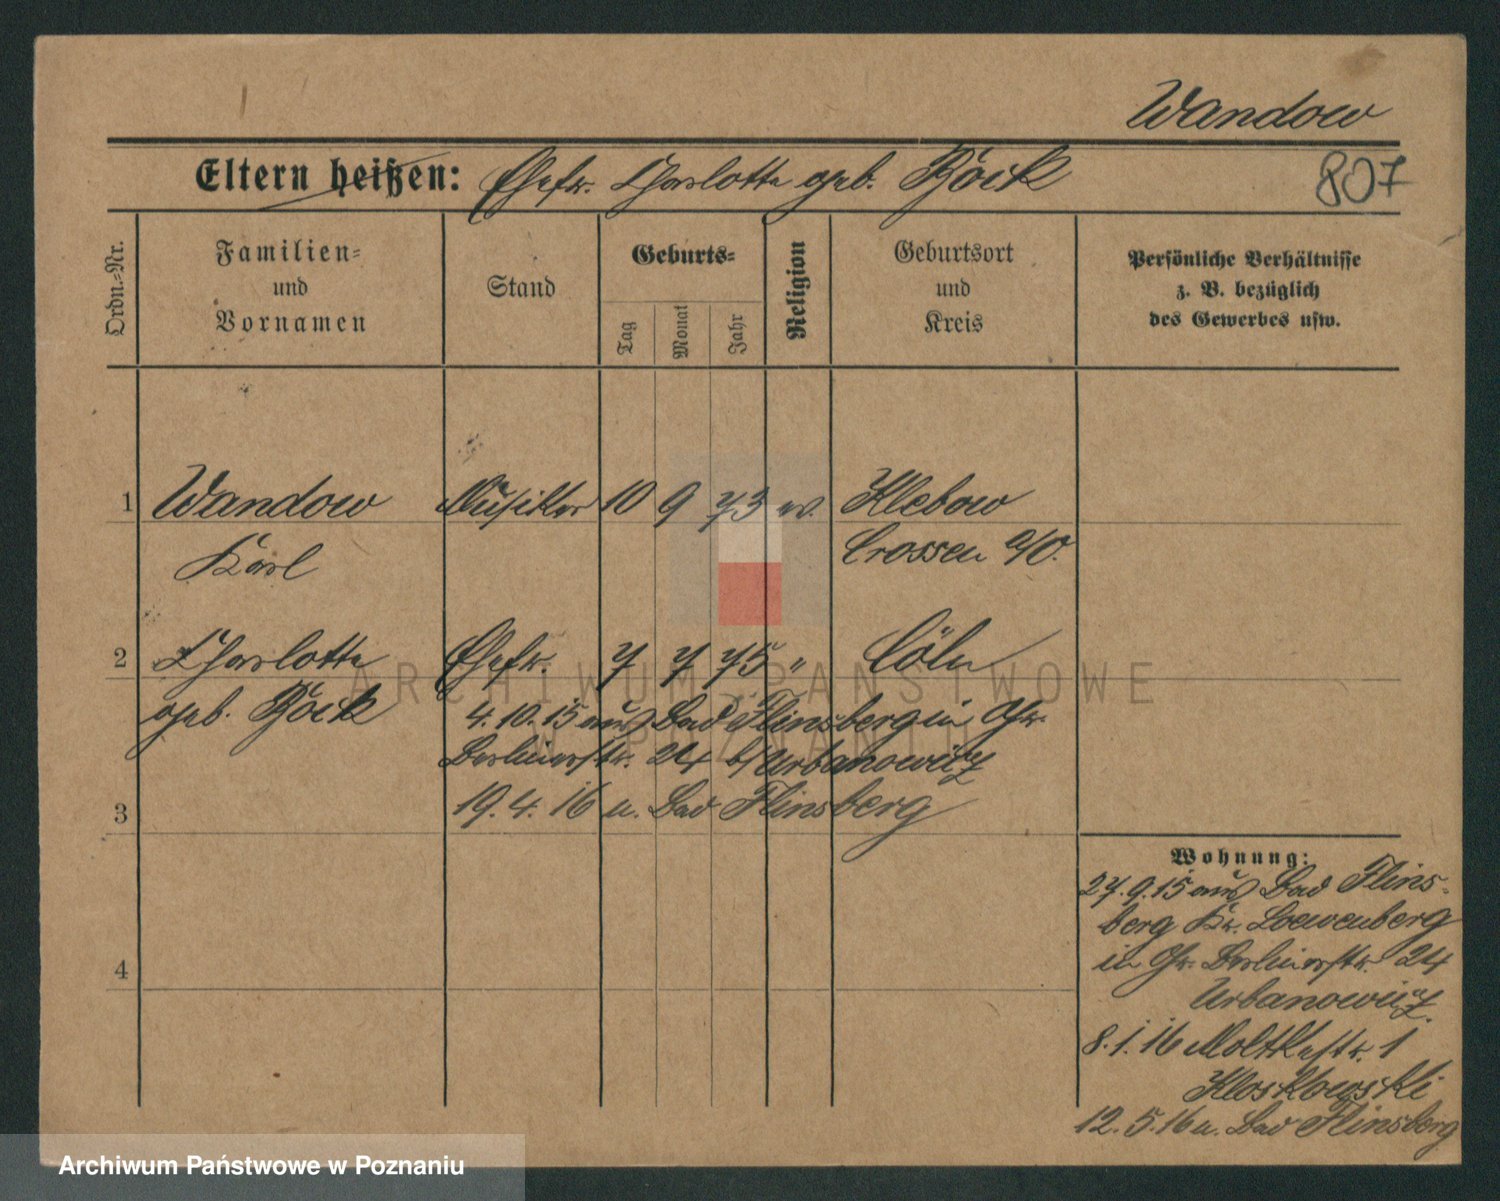 Wandow
Eltern heißen: Ehefr. Charlotte geb. Böck
807
Ordn.-Nr.
Familien-
und
Vornamen
Stand
Geburts-
Tag
Monat
Jahr
Religion
Geburtsort
und
Kreis
Persönliche Verhältnisse
z. B. bezüglich
des Gewerbes usw.
1 Wandow Musiker 10 9 73 ev. Klebow
Karl Crossen a/O.
2 Charlotte Ehefr. 7 7 75 " Cöln
geb. Böck 4.10.15 aus Bad Flinsberg in Gr.
Berlinerstr. 24 b/Urbanowicz
3 19.4.16 n. Bad Flinsberg
4
Wohnung:
27.9.15 aus Bad Flins-
berg Kr. Loewenberg
in Gr. Berlinerstr. 24
Urbanowicz.
8.1.16 Moltkestr. 1
Kloskowski
12.5.16 n. Bad Flinsberg
ARCHIWUM PAŃSTWOWE
W POZNANIU
Archiwum Państwowe w Poznaniu